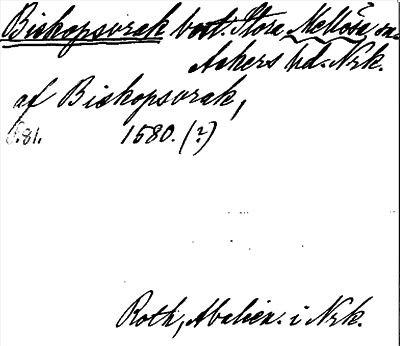 Biskopsvrak bort. Stora Mellösa, sn.
Askers hd. Nrk.
af Biskopsvrak,
S. 81. 1580. (?)
Roth, Abalien. i Nrk.